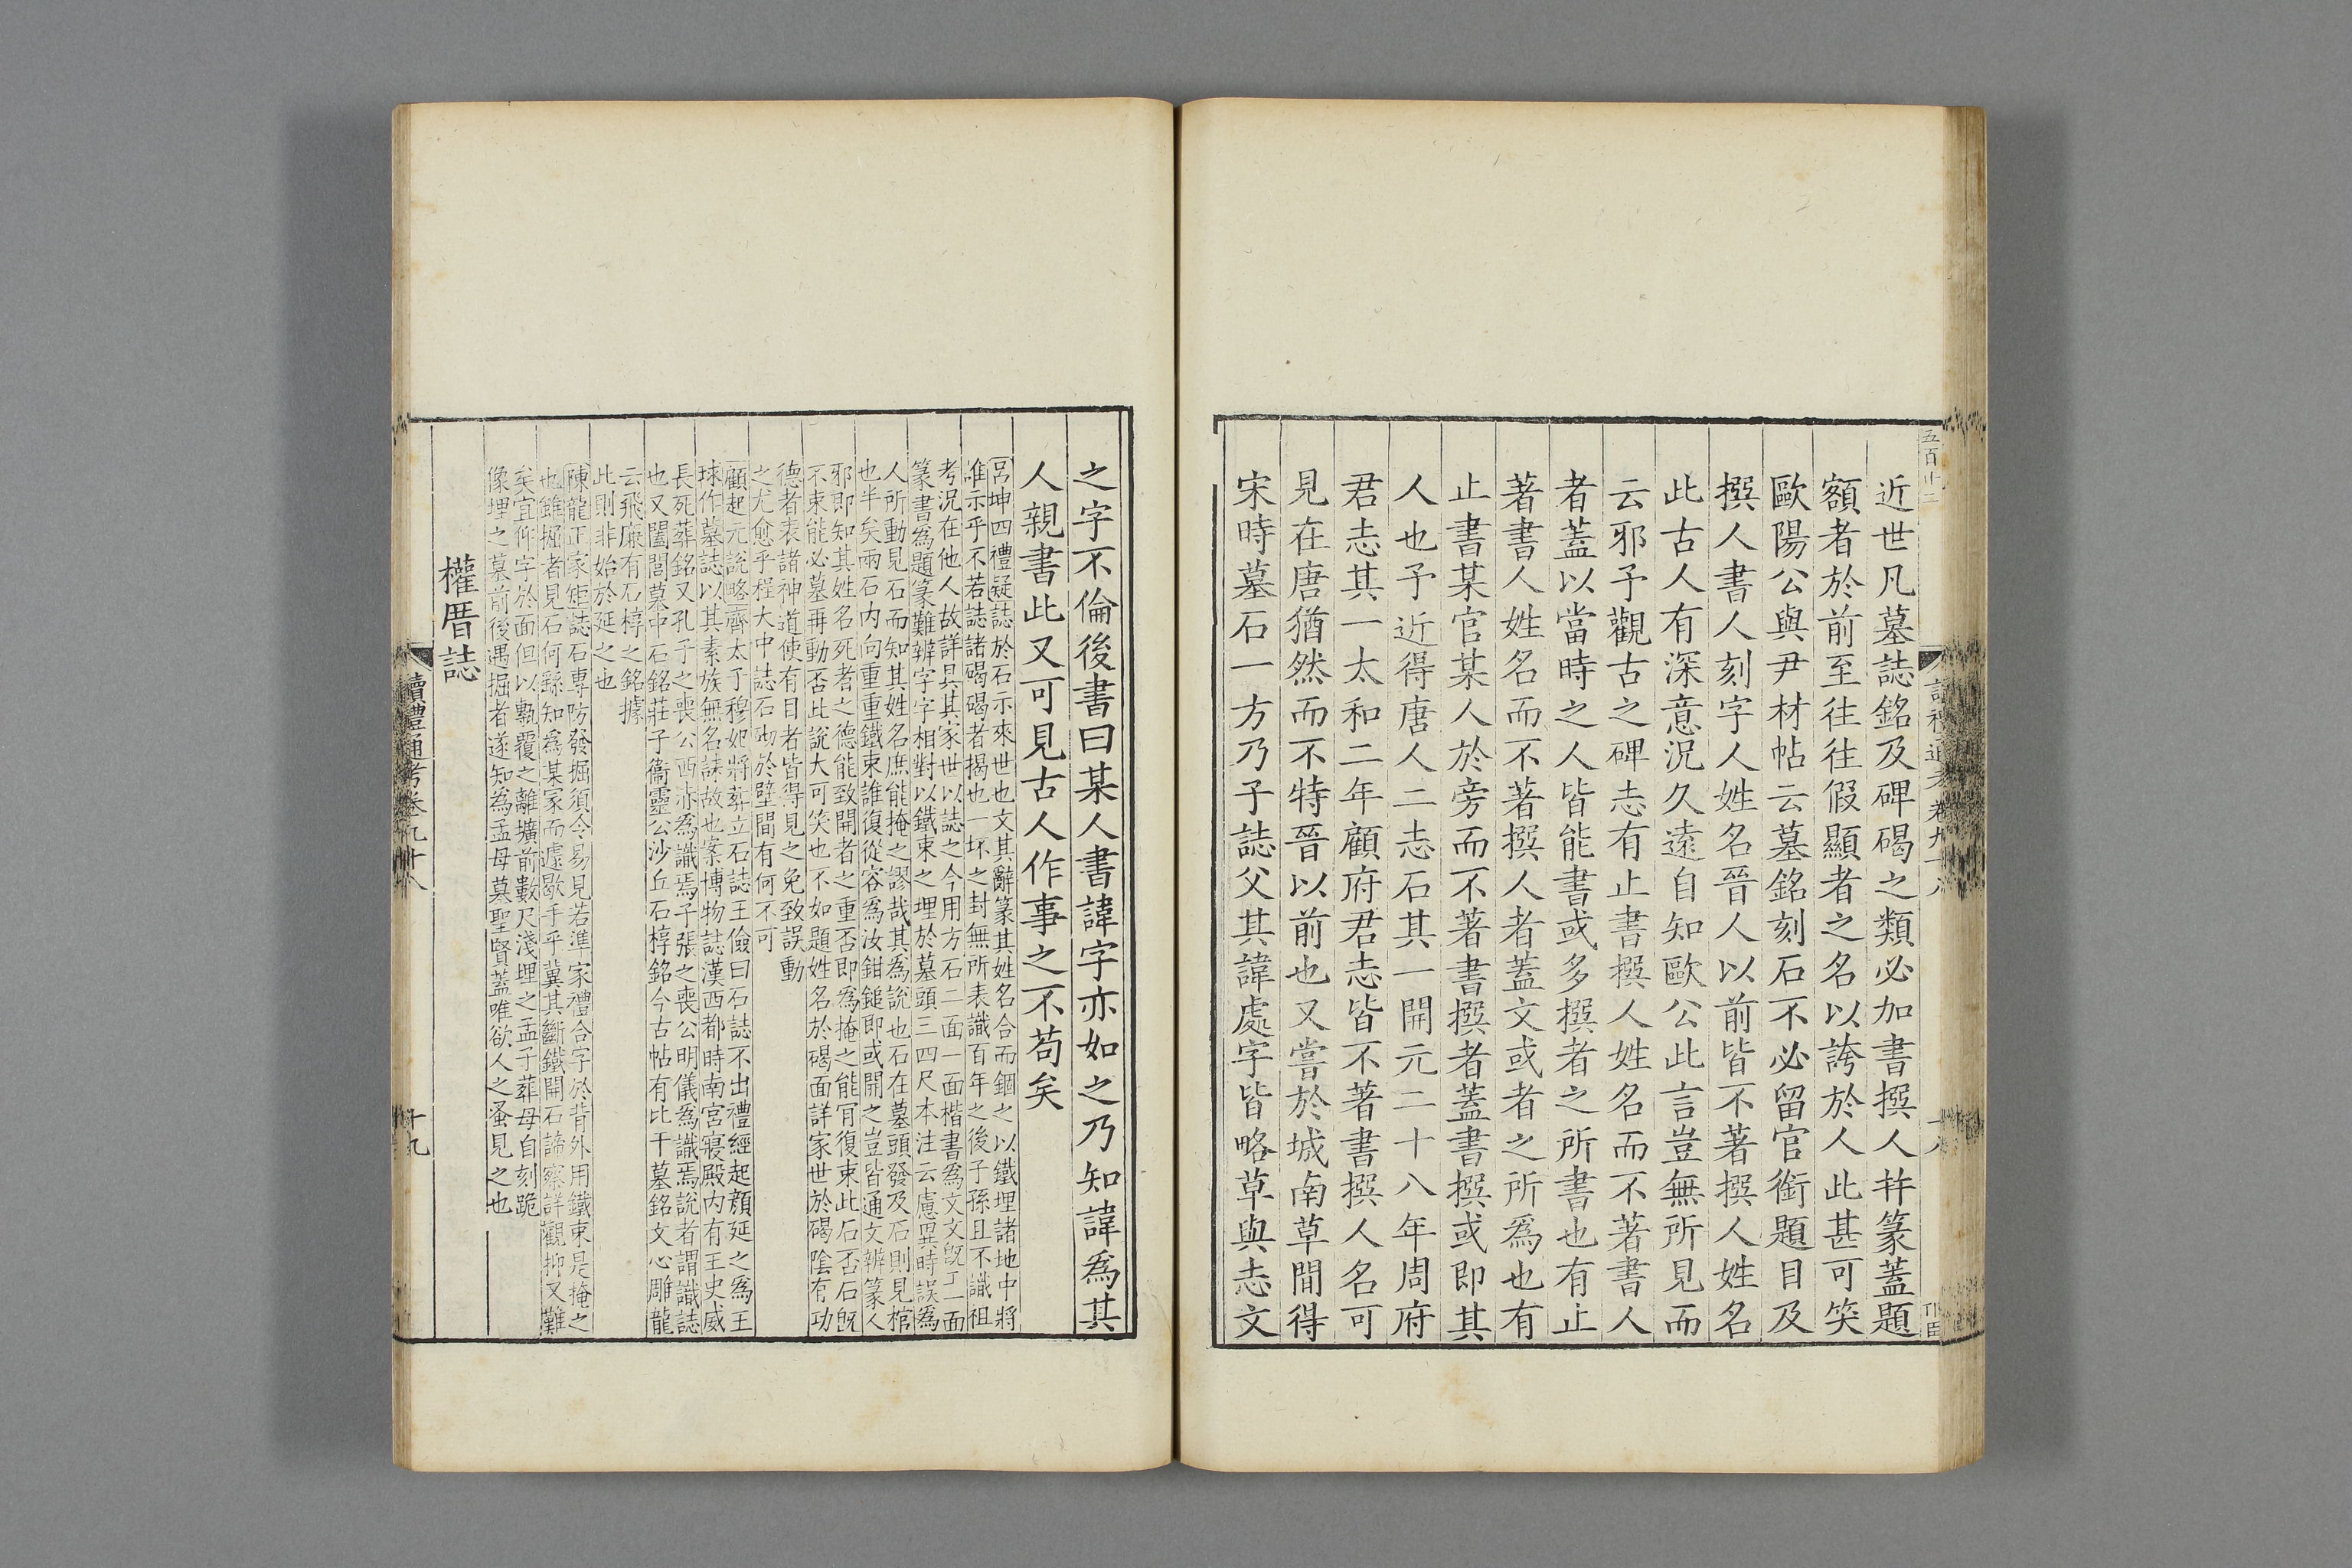 近世凡墓誌銘及碑碣之類必加書撰人幷篆蓋題
額者於前至往往假顯者之名以誇於人此甚可笑
歐陽公與尹材帖云墓銘刻石不必留官銜題目及
撰人書人刻字人姓名晉人以前皆不著撰人姓名
此古人有深意況久遠自知歐公此言豈無所見而
云邪予觀古之碑志有止書撰人姓名而不著書人
者蓋以當時之人皆能書或多撰者之所書也有止
著書人姓名而不著撰人者蓋文或者之所爲也有
止書某官某人於旁而不著書撰者蓋書撰或即其
人也予近得唐人二志石其一開元二十八年周府
君志其一太和二年顧府君志皆不著書撰人名可
見在唐猶然而不特晉以前也又嘗於城南草間得
宋時墓石一方乃子誌父其諱處字皆略草與志文
之字不倫後書曰某人書諱字亦如之乃知諱爲其
人親書此又可見古人作事之不苟矣
呂坤四禮疑誌於石示來世也文其辭篆其姓名合而錮之以鐵埋諸地中將
誰示乎不若誌諸碣碣者揭也一坏之封無所表識百年之後子孫且不識祖
考況在他人故詳具其家世以誌之今用方石二面一面楷書爲文文旣工一面
篆書爲題篆難辨字字相對以鐵束之埋於墓頭三四尺本注云慮異時誤爲
人所動見石而知其姓名庶能掩之謬哉其爲說也石在墓頭發及石則見棺
也半矣兩石內向重重鐵束誰復從容爲汝鉗鎚即或開之豈皆通文辨篆人
邪即知其姓名死者之德能致開者之重否即爲掩之能肎復束此石否石旣
不束能必墓再動否此說大可笑也不如題姓名於碣面詳家世於碣陰有功
德者表諸神道使有目者皆得見之免致誤動
之尤愈乎程大中誌石砌於壁間有何不可
顧起元說略齊太子穆妃將葬立石誌王儉曰石誌不出禮經起顏延之爲王
球作墓誌以其素族無名誄故也案博物誌漢西都時南宮寢殿內有王史威
長死葬銘又孔子之喪公西赤爲識焉子張之喪公明儀爲識焉說者謂識誌
也又闔閭墓中石銘莊子衞靈公沙丘石椁銘今古帖有比干墓銘文心雕龍
云飛廉有石椁之銘據
此則非始於延之也
陳龍正家矩誌石專防發掘須令易見若準家禮合字於背外用鐵束是掩之
也雖掘者見石何繇知爲某冢而遽歇手乎冀其斷鐵開石諦察詳觀抑又難
矣宜仰字於面但以甎覆之離壙前數尺淺埋之孟子葬母自刻跪
像埋之墓前後遇掘者遂知爲孟母墓聖賢蓋唯欲人之蚤見之也
權厝誌
讀禮通考卷九十八
十九